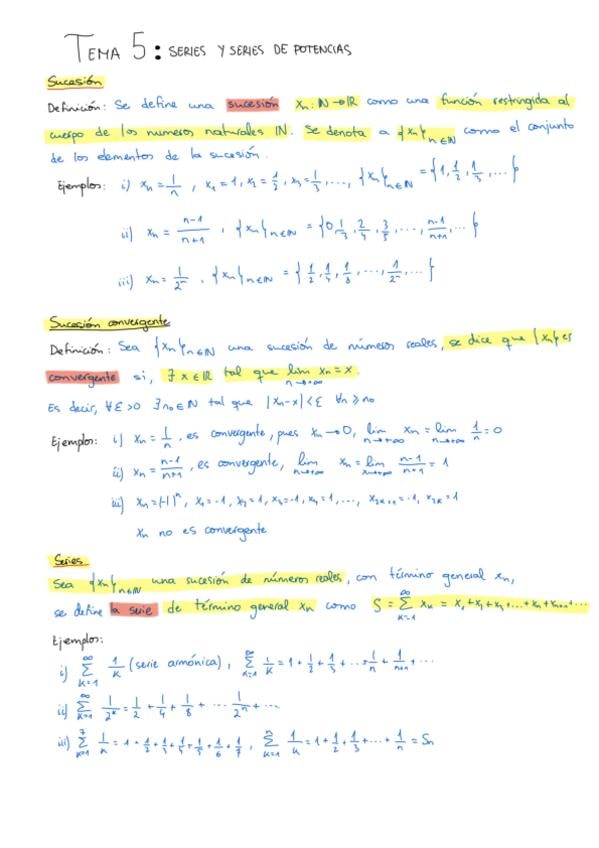 TEMA 5: SERIES Y SERIES DE POTENCIAS
Sucesión
Definición: Se define una sucesión xₙ: ℕ → ℝ como una función restringida al
cuerpo de los numeros naturales ℕ. Se denota a {xₙ}ₙ∈ℕ como el conjunto
de los elementos de la sucesión.
Ejemplos: i) xₙ = 1/n , x₁ = 1, x₂ = 1/2, x₃ = 1/3, ..., {xₙ}ₙ∈ℕ = {1, 1/2, 1/3, ... }
ii) xₙ = n-1/n+1 , {xₙ}ₙ∈ℕ = {0, 1/3, 2/4, 3/5, ..., n-1/n+1, ... }
iii) xₙ = 1/2ⁿ , {xₙ}ₙ∈ℕ = {1/2, 1/4, 1/8, ..., 1/2ⁿ, ... }
Sucesión convergente
Definición: Sea {xₙ}ₙ∈ℕ una sucesión de números reales, se dice que {xₙ} es
convergente si, ∃ x ∈ ℝ tal que lim n→+∞ xₙ = x.
Es decir, ∀ε > 0 ∃ n₀ ∈ ℕ tal que |xₙ - x| < ε ∀n ≥ n₀
Ejemplos: i) xₙ = 1/n , es convergente, pues xₙ → 0, lim n→+∞ xₙ = lim n→+∞ 1/n = 0
ii) xₙ = n-1/n+1 , es convergente, lim n→+∞ xₙ = lim x→+∞ n-1/n+1 = 1
iii) xₙ = (-1)ⁿ, x₁ = -1, x₂ = 1, x₃ = -1, x₄ = 1, ..., x₂ₖ₊₁ = -1, x₂ₖ = 1
xₙ no es convergente
Series
Sea {xₙ}ₙ∈ℕ una sucesión de números reales, con término general xₙ,
se define la serie de término general xₙ como S = ∑ₖ₌₁^∞ xₖ = x₁ + x₂ + x₃ + ... + xₙ + xₙ₊₁ + ...
Ejemplos:
i) ∑ₖ₌₁^∞ 1/k (serie armónica) , ∑ₖ₌₁^∞ 1/k = 1 + 1/2 + 1/3 + ... + 1/n + 1/n+1 + ...
ii) ∑ₖ₌₁^∞ 1/2ᵏ = 1/2 + 1/4 + 1/8 + ... 1/2ⁿ + ...
iii) ∑ₖ₌₁^7 1/k = 1 + 1/2 + 1/3 + 1/4 + 1/5 + 1/6 + 1/7 , ∑ₖ₌₁^n 1/k = 1 + 1/2 + 1/3 + ... + 1/n = Sₙ